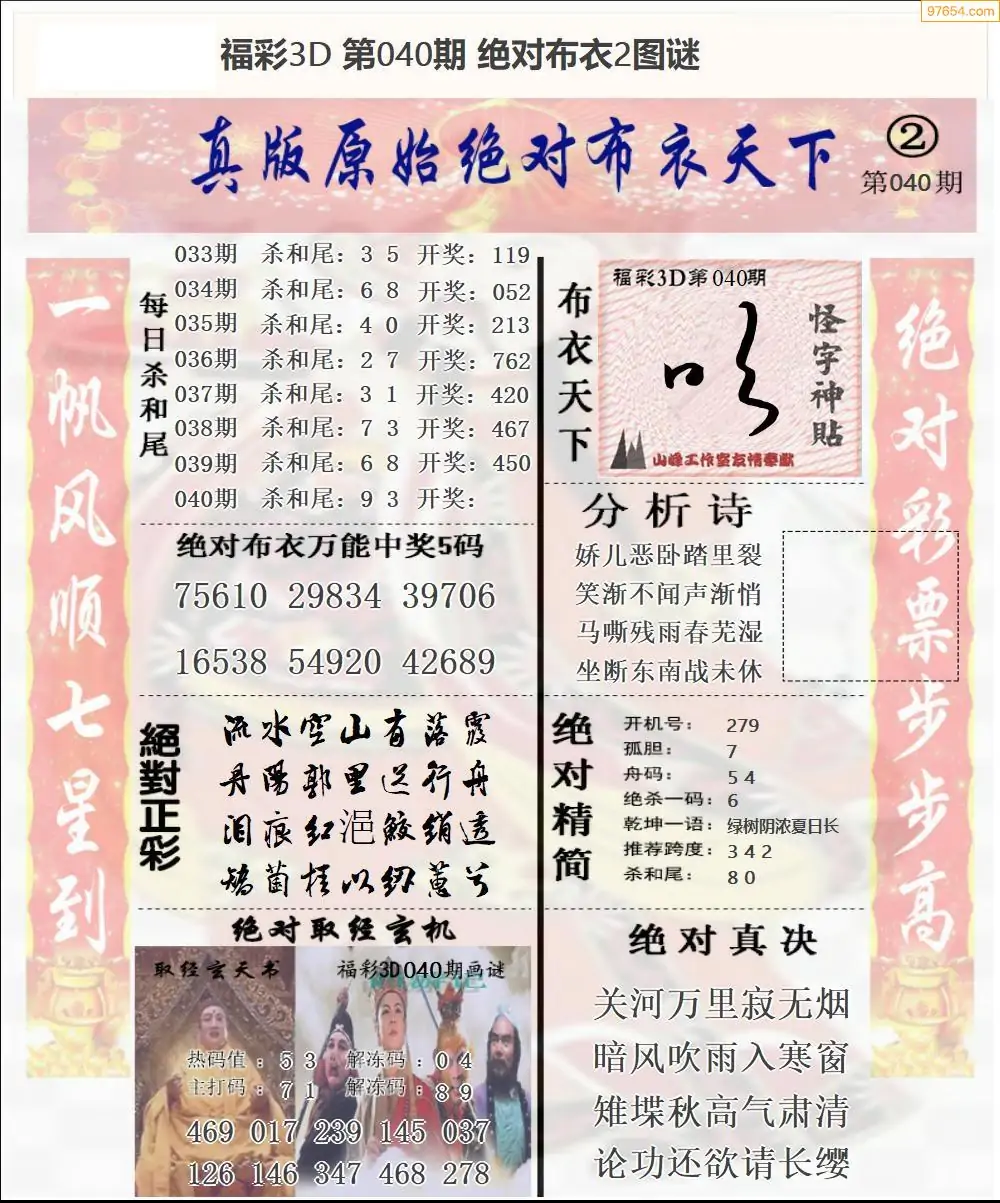 97654.com
福彩3D 第040期 绝对布衣2图谜
真版原始绝对布衣天下
②
第040期
一帆风顺七星到
每日杀和尾
033期 杀和尾：3 5 开奖：119
034期 杀和尾：6 8 开奖：052
035期 杀和尾：4 0 开奖：213
036期 杀和尾：2 7 开奖：762
037期 杀和尾：3 1 开奖：420
038期 杀和尾：7 3 开奖：467
039期 杀和尾：6 8 开奖：450
040期 杀和尾：9 3 开奖：
绝对布衣万能中奖5码
75610 29834 39706
16538 54920 42689
絕對正彩
流水空山有落霞
丹陽郭里送行舟
泪痕红浥鲛绡透
矫菌桂以纫蕙兮
绝对取经玄机
取经玄天书
福彩3D040期画谜
热码值：5 3 解冻码：0 4
主打码：7 1 解冻码：8 9
469 017 239 145 037
126 146 347 468 278
布衣天下
福彩3D第040期
怪字神貼
山峰工作室友情奉献
分析诗
娇儿恶卧踏里裂
笑渐不闻声渐悄
马嘶残雨春芜湿
坐断东南战未休
绝对精简
开机号：279
孤胆：7
舟码：5 4
绝杀一码：6
乾坤一语：绿树阴浓夏日长
推荐跨度：3 4 2
杀和尾：8 0
绝对真决
关河万里寂无烟
暗风吹雨入寒窗
雉堞秋高气肃清
论功还欲请长缨
绝对彩票步步高